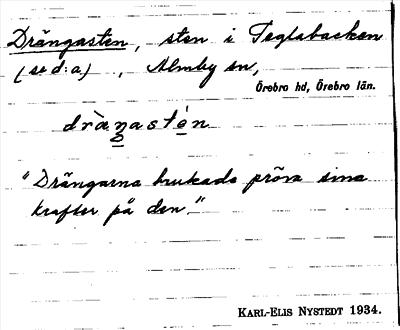 Drängasten, sten i Teglabacken
(se d:a), Almby sn,
Örebro hd, Örebro län.
dràŋastén
"Drängarna brukade pröva sina
krafter på den."
KARL-ELIS NYSTEDT 1934.